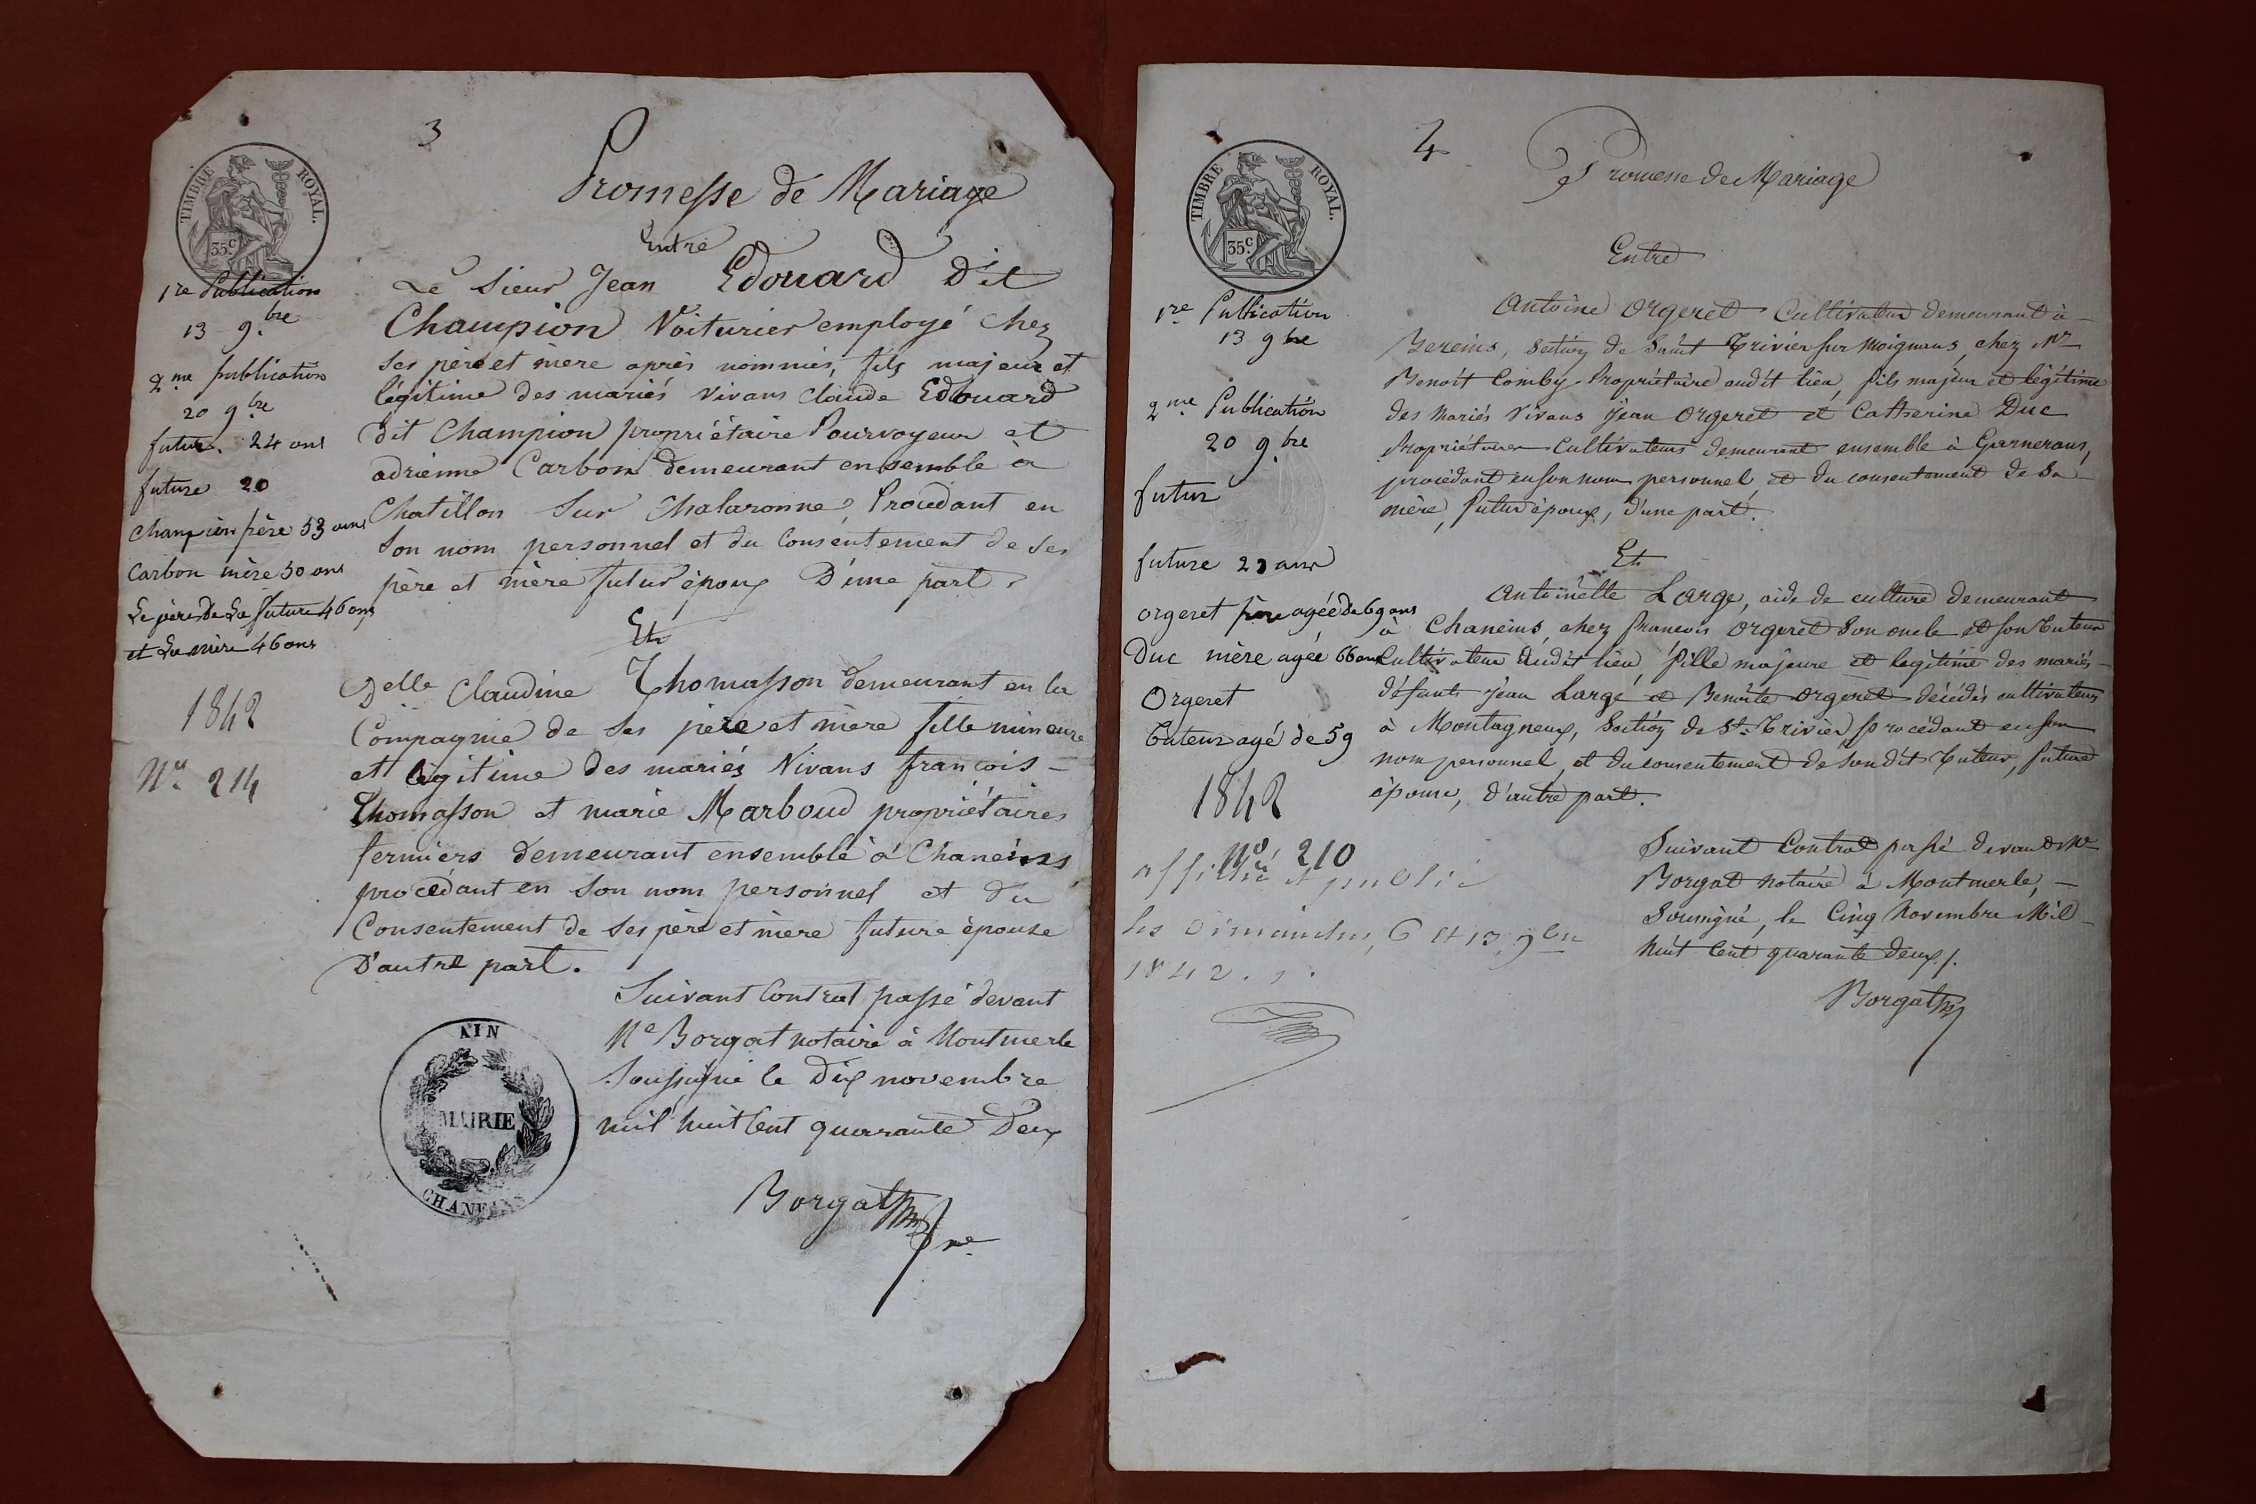 3
Promesse de Mariage
Entre
Le Sieur Jean Edouard Dit
Champion Voiturier employé chez
ses père et mère après nommés, fils majeur et
légitime des mariés vivans Claude Edouard
dit Champion propriétaire Pourvoyeur et
adrienne Carbon demeurant ensemble à
Chatillon Sur Chalaronne, Procédant en
son nom personnel et du Consentement de ses
père et mère futur époux D'une part.
Et
Delle Claudine Thomasson demeurant en la
Compagnie de ses père et mère fille mineure
et légitime des mariés Vivans françois
Thomasson et marie Marboud propriétaires
fermiers demeurant ensemble à Chaneins
procédant en son nom personnel et du
Consentement de ses père et mère future épouse
D'autre part.
Suivant Contrat passé devant
Me Borgat notaire à Montmerle
Soussigné le Dix novembre
mil huit Cent quarante Deux
Borgat
ne
TIMBRE ROYAL.
35c
1re Publication
13 9.bre
2.me publication
20 9.bre
futur. 24 ans
future 20
Champion père 53 ans
Carbon mère 50 ans
Le père de La future 46 ans
et La mère 46 ans
1842
No. 214
AIN
MAIRIE
CHANEINS
4
Promesse de Mariage
Entre
Antoine Orgeret Cultivateur demeurant à
Bereins, section de Saint Trivier sur Moignans, chez Mr
Benoit Comby Propriétaire audit lieu, fils majeur et légitime
des mariés vivans Jean Orgeret et Catherine Duc
Propriétaires Cultivateurs demeurant ensemble à Garnerans,
procédant en son nom personnel et du consentement de Sa
mère, futur époux, d'une part.
Et
Antoinette Large, aide de culture demeurant
à Chaneins, chez francois Orgeret son oncle et son tuteur
Cultivateur audit lieu, fille majeure et légitime des mariés
défunts Jean Large et Benoite Orgeret décédés cultivateurs
à Montagneux, Section de St. Trivier procédant en son
nom personnel, et du consentement de Sondit tuteur, future
épouse, d'autre part.
Suivant Contrat passé devant Me
Borgat notaire à Montmerle,
Soussigné, le Cinq Novembre Mil
huit Cent quarante deux./.
Borgat
TIMBRE ROYAL.
35c.
1re. Publication
13 9.bre
2.me Publication
20 9.bre
futur
future 21 ans
Orgeret père agée de 69 ans
Duc mère agée 66 ans
Orgeret
tuteur agé de 59
1842
No. 210
affiché et publié
les dimanches, 6 et 13, 9bre
1842.